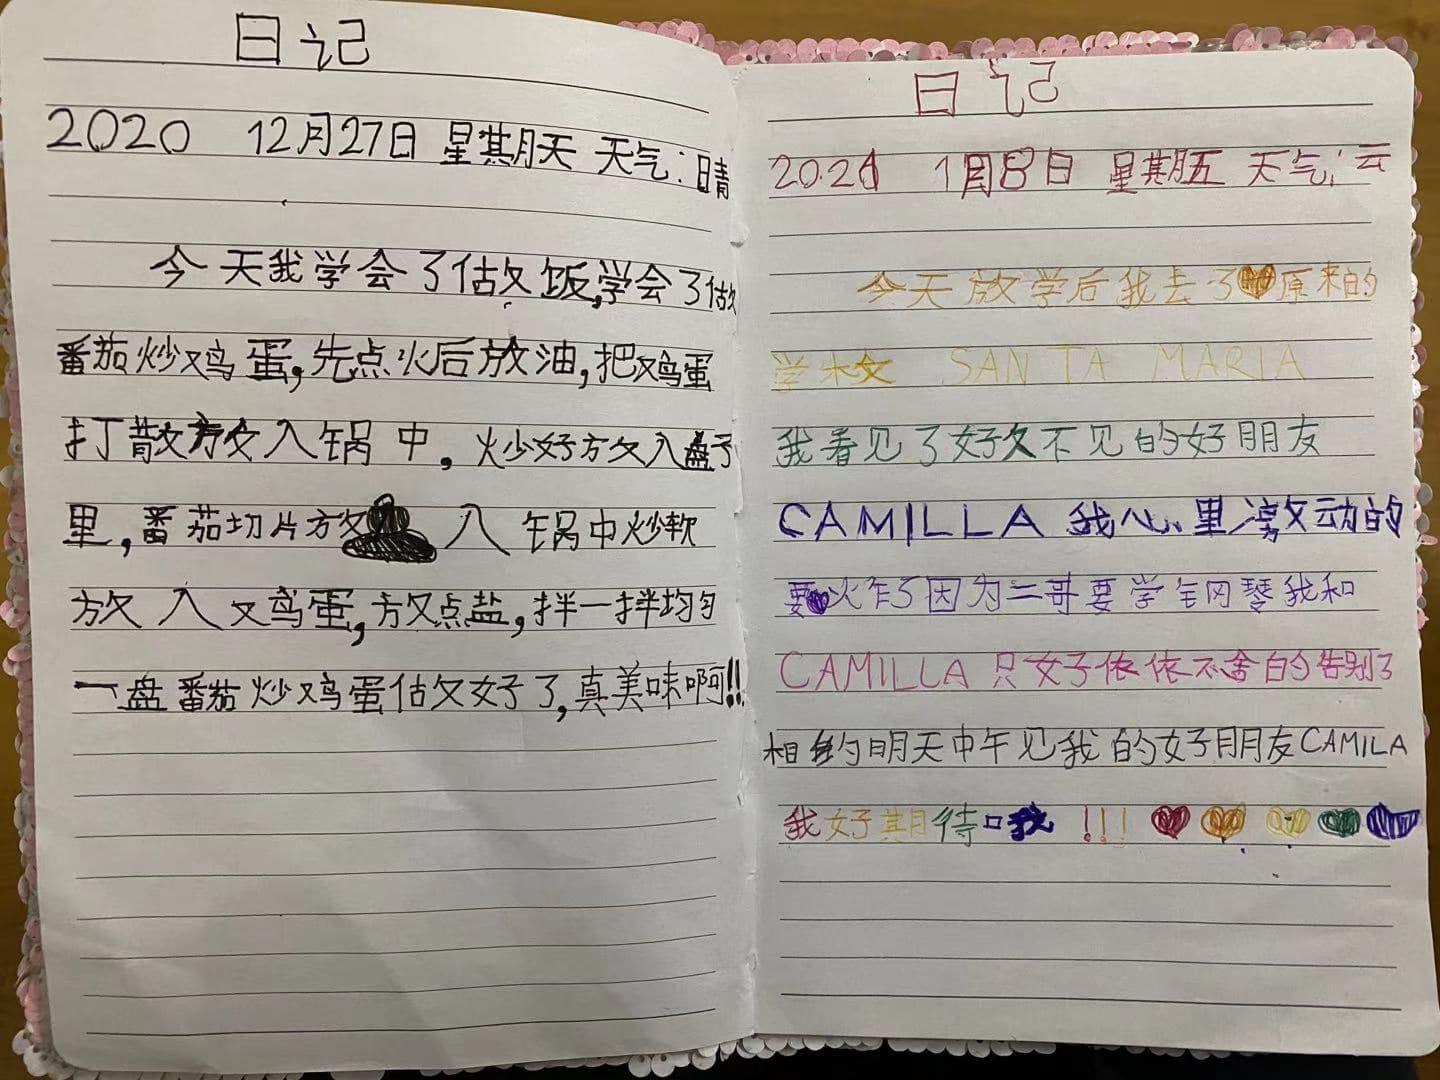 日记
2020 12月27日 星期天 天气:晴
今天我学会了做饭,学会了做
番茄炒鸡蛋,先点火后放油,把鸡蛋
打散放入锅中,炒好放入盘子
里,番茄切片放入锅中炒软
放入鸡蛋,放点盐,拌一拌均匀
一盘番茄炒鸡蛋做好了,真美味啊!!
日记
2021 1月8日 星期五 天气:云
今天放学后我去了原来的
学校 SANTA MARIA
我看见了好久不见的好朋友
CAMILLA 我心里激动的
要火乍了因为二哥要学钢琴我和
CAMILLA 只好依依不舍的告别了
相约明天中午见我的好朋友CAMILA
我好期待哦 !!!